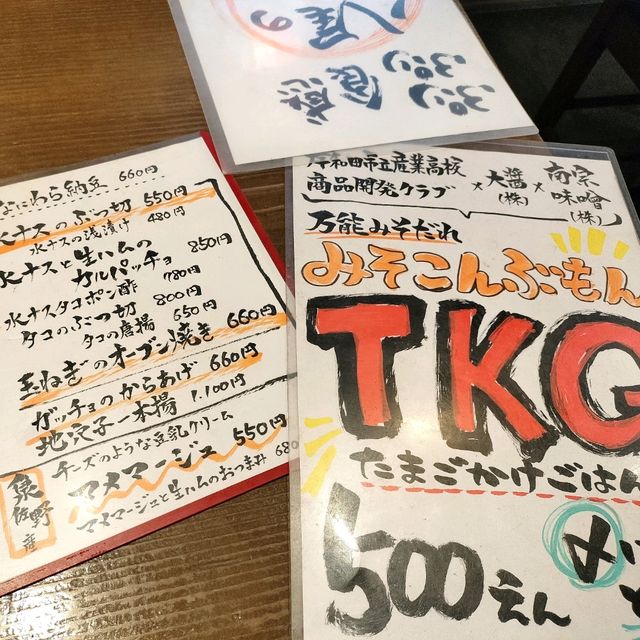 八尾の
ぷりぷり
食感
なにわら納豆 660円
水ナスのぶつ切 550円
水ナスの浅漬け 480円
水ナスと生ハムの
カルパッチョ 850円
水ナスタコポン酢 780円
タコのぶつ切 800円
タコの唐揚 650円
玉ねぎのオーブン焼き 660円
ガッチョのからあげ 660円
地穴子一本揚 1.100円
チーズのような豆乳クリーム
マメマージュ 550円
マメマージュと生ハムのおつまみ 680
泉佐野産
岸和田市立産業高校
商品開発クラブ × 大醤(株) × 南宗味噌(株)
万能みそだれ
みそこんぶもん
TKG
たまごかけごはん
500えん
〆